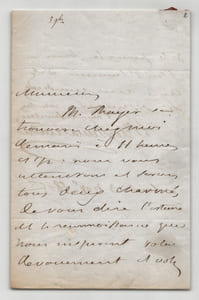 Monsieur
M. Mayer se
trouvera chez moi
demain à 11 heures
et ½ : nous vous
attendrons et serons
tous deux charmés
de vous dire l'estime
et la reconnaissance que
nous inspirent votre
dévouement et votre